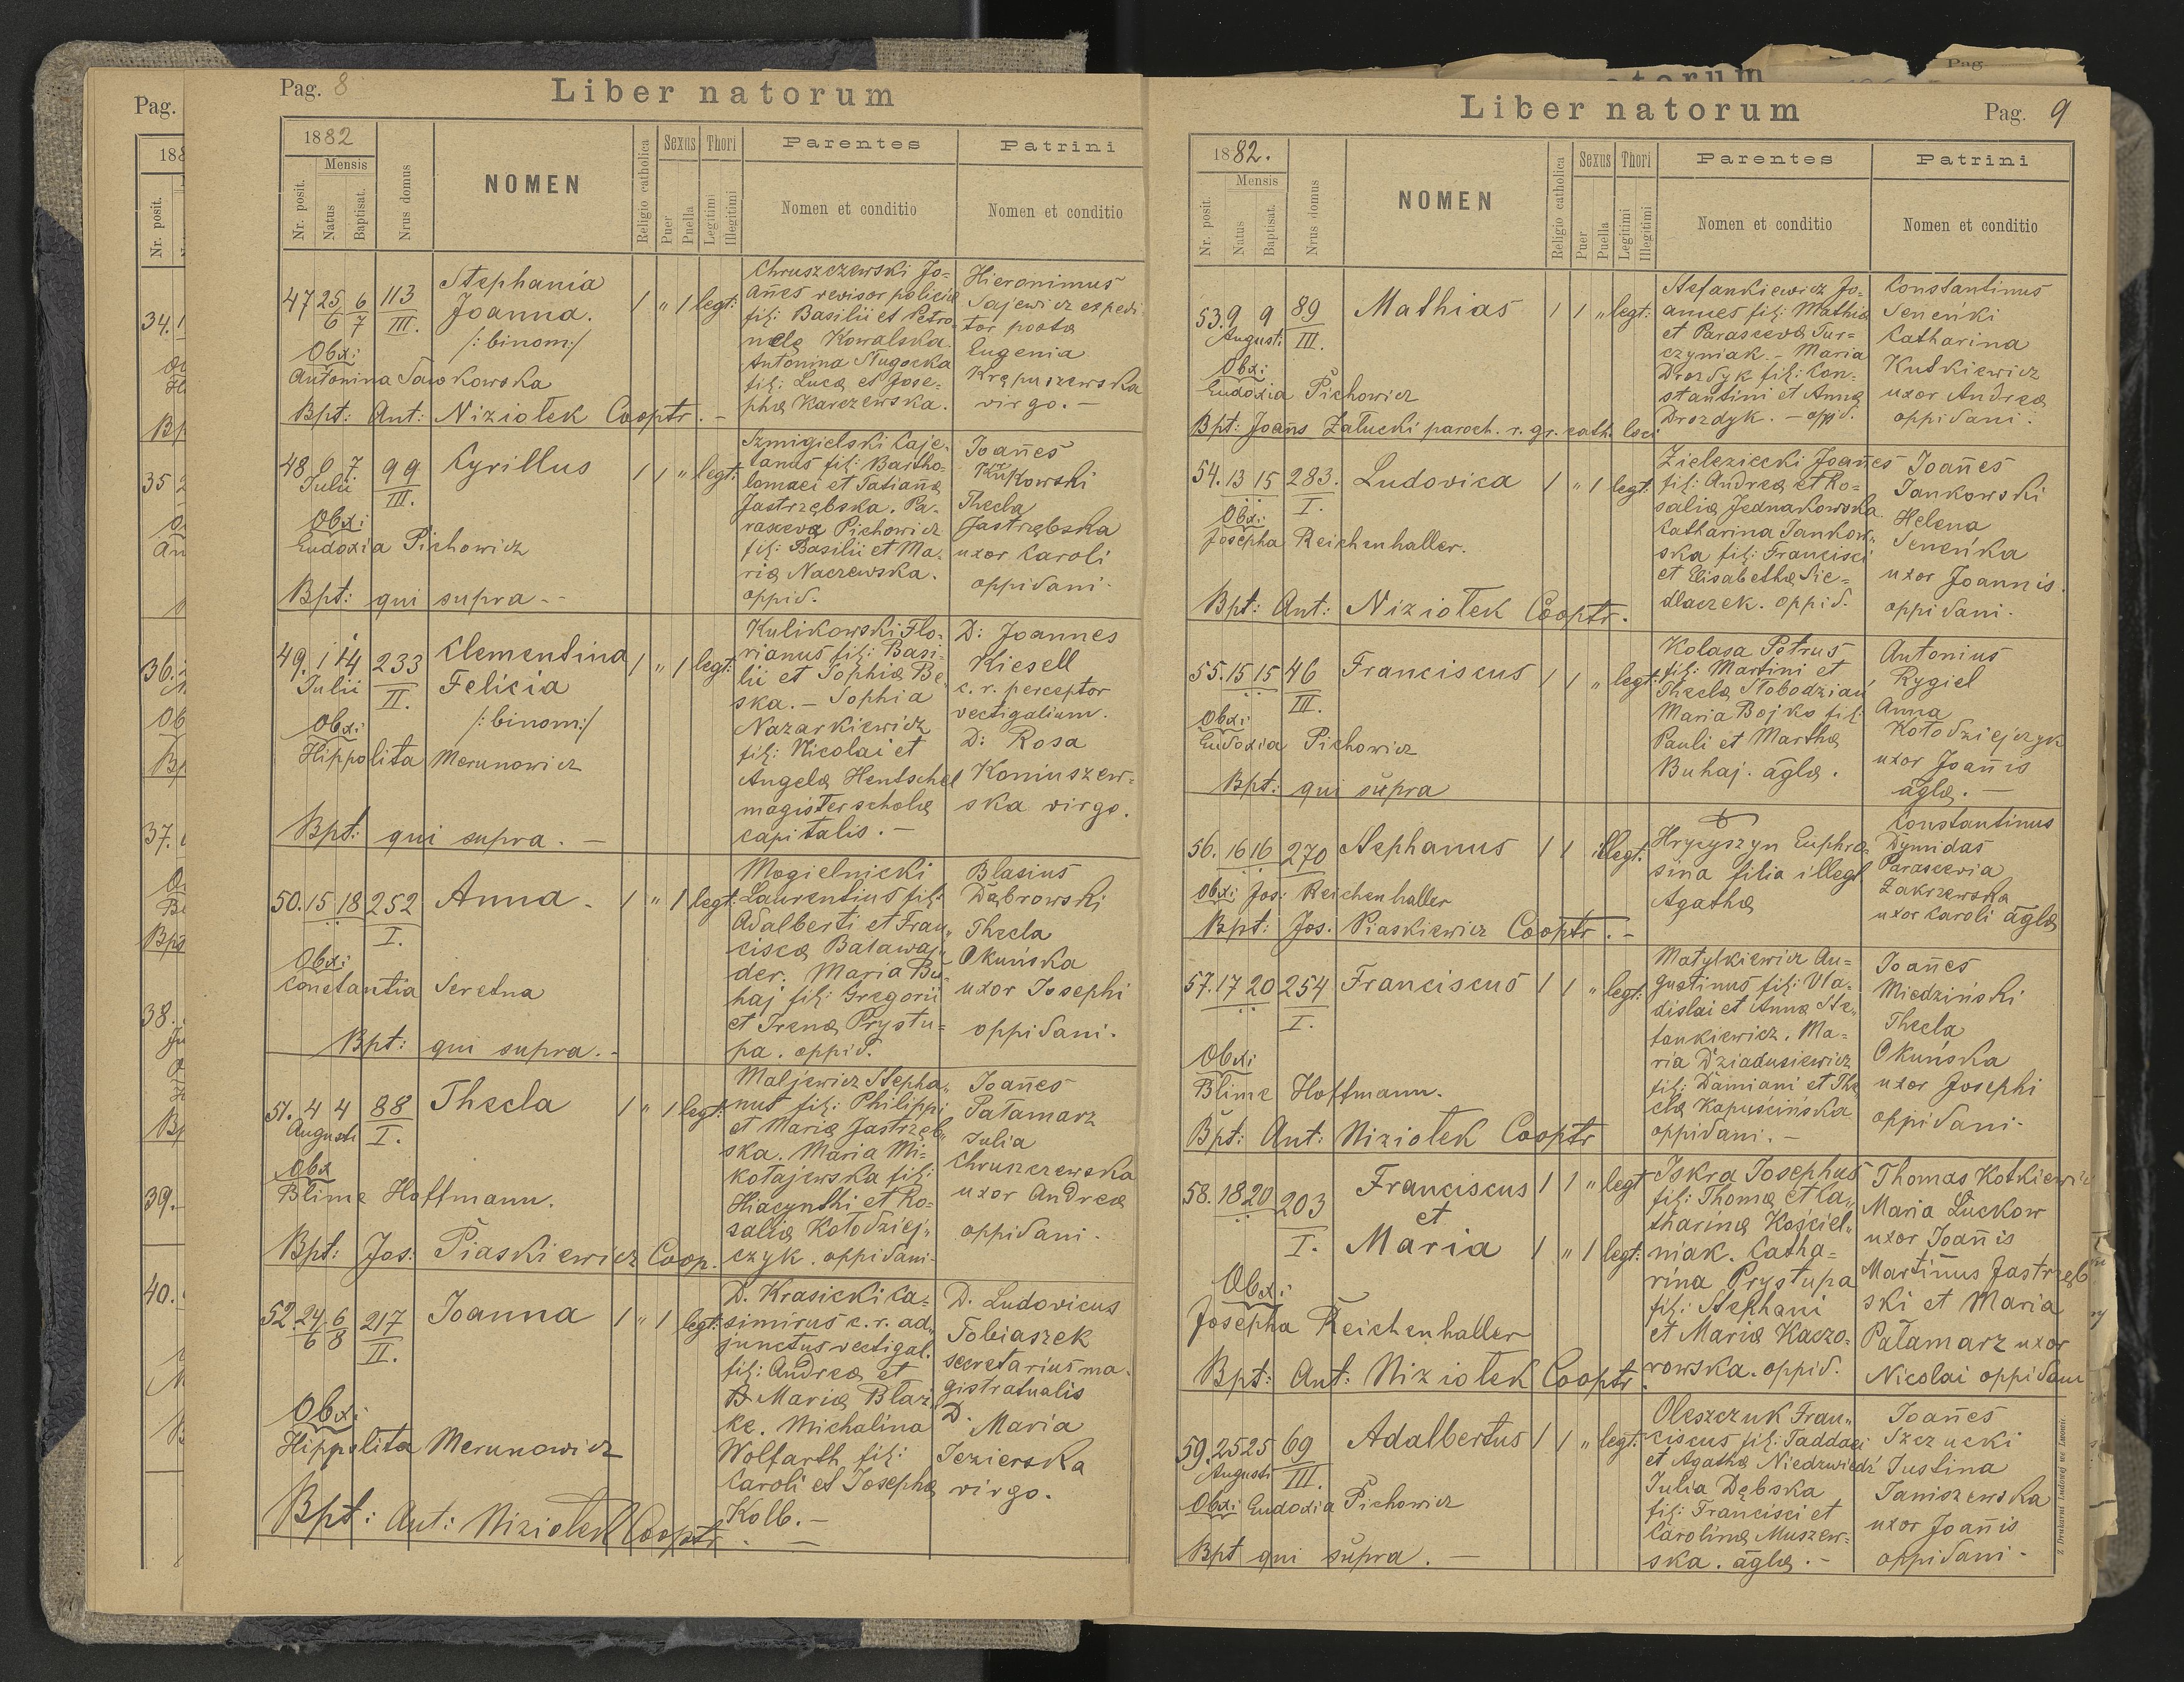 Pag. 8
Liber natorum
1882
Mensis
Nr. posit.
Natus
Baptisat.
Nrus domus
NOMEN
Religio catholica
Sexus
Puer
Puella
Thori
Legitimi
Illegitimi
Parentes
Nomen et conditio
Patrini
Nomen et conditio
47 25/6 6/7 113 III.
Stephania
Joanna.
/:binom:/
1 " 1 legt:
Chruszczewski Jo=
añes revisor policiæ
fil: Basilii et Petro-
nelæ Kowalska.
Antonina Slugocka
fil: Lucæ et Jose-
phæ Karczewska.
Hieronimus
Sajewicz expedi
tor postæ
Eugenia
Krępuszewska
virgo. -
Obx:
Antonina Sawkowska
Bpt: Ant: Niziołek Cooptr. -
48 6 7 99 III.
Julii
Cyrillus
1 1 " legt:
Szmigielski Caje-
tanus fil: Bartho-
lomaei et Tatiañæ
Jastrzębska. Pa-
rasceva Pichowicz
fil: Basilii et Ma-
riæ Naczewska.
oppid.
Joañes
Kulkowski
Thecla
Jastrzębska
uxor Caroli
oppidani.
Obx:
Eudoxia Pichowicz
Bpt: qui supra - -
49. 1 14 233 II.
Julii
Clementina
Felicia
/:binom:/
1 " 1 legt:
Kulikowski Flo-
rianus fil: Basi-
lii et Sophiæ Be-
ska. - Sophia
Nazarkiewicz
fil: Nicolai et
Angelæ Hentschel
magister scholæ
capitalis. -
D: Joannes
Kiesell
c. r. perceptor
vectigalium.
D: Rosa
Koniuszew-
ska virgo.
Obx:
Hippolita Merunowicz
Bpt: qui supra. -
50. 15 18 252 I.
Anna -
1 " 1 legt:
Mogielnicki
Laurentius fil:
Adalberti et Fran-
ciscæ Baławaj-
der. Maria Bu-
haj fil: Gregorii
et Irenæ Prystu=
pa. oppid.
Blasius
Dąbrowski
Thecla
Okuńska
uxor Josephi
oppidani.
Obx:
Constantia Seretna
Bpt: qui supra. -
51. 4 4 88 I.
Augusti
Thecla
1 " 1 legt:
Maljewicz Stepha-
nus fil: Philippi
et Mariæ Jastrzęb-
ska. Maria Mi=
kołajewska fil:
Hiacynthi et Ro-
saliæ Kołodziej-
czyk. oppidani.
Joañes
Patamarz
Julia
Chruszczewska
uxor Andreæ
oppidani.
Obx
Blime Hoffmann.
Bpt: Jos: Piaskiewicz Coop.
52. 24/6 6/8 217 II.
Joanna
1 " 1 legt:
D. Krasicki Ca=
simirus c. r. ad-
junctus vectigal.
fil: Andreæ et
Mariæ Blaz-
ke. Michalina
Wolfarth fil:
Caroli et Josephæ
Kolb. -
D. Ludovicus
Tobiaszek
secretarius ma-
gistratualis
D. Maria
Jezierska
virgo.
Obx:
Hippolita Merunowicz
Bpt: Ant: Niziołek Cooptr. -
Pag. 9
Liber natorum
1882.
Mensis
Nr. posit.
Natus
Baptisat.
Nrus domus
NOMEN
Religio catholica
Sexus
Puer
Puella
Thori
Legitimi
Illegitimi
Parentes
Nomen et conditio
Patrini
Nomen et conditio
53. 9 9 89 III.
Augusti
Mathias
1 1 " legt:
Stefankiewicz Jo-
annes fil: Mathiæ
et Parascevæ Tur=
czyniak. - Maria
Drozdyk fil: Con-
stantini et Annæ
Drozdyk. - oppid.
Constantinus
Seneńki
Catharina
Kutkiewicz
uxor Andreæ
oppidani.
Obx:
Eudoxia Pichowicz
Bpt: Joañs Załucki paroch. r. gr. cath. loci
54. 13 15 283. I.
Ludovica
1 " 1 legt:
Zieleziecki Joañes
fil: Andreæ et Ro=
saliæ Jednakowska.
Catharina Jankow-
ska fil: Francisci
et Elisabethæ Sie=
dlaczek. oppid.
Joañes
Jankowski
Helena
Seneńka
uxor Joannis.
oppidani.
Obx:
Josepha Reichenhaller.
Bpt: Ant: Niziołek Cooptr.
55. 15 15 46 III.
Franciscus
1 1 " legt:
Kolasa Petrus
fil: Martini et
Theclæ Słobodzian
Maria Bojko fil:
Pauli et Marthæ
Buhaj. aglæ.
Antonius
Rygiel
Anna
Kołodziejczyk
uxor Joañis
aglæ. -
Obx:
Eudoxia Pichowicz
Bpt: qui supra
56. 16 16 270
Stephanus
1 1 illegt.
Hrycyszyn Euphro-
sina filia illegt
Agathæ
Constantinus
Dymidas
Parascevia
Zakrzewska
uxor Caroli aglæ
Obx: Jos: Reichenhaller
Bpt: Jos: Piaskiewicz Cooptr. -
57. 17 20 254 I.
Franciscus
1 1 " legt:
Matylkiewicz Au=
gustinus fil: Vla-
dislai et Annæ Ste-
fankiewicz. Ma-
ria Dziadusiewicz
fil: Damiani et The
clæ Kapuścińska
oppidani. -
Joañes
Miedziński
Thecla
Okuńska
uxor Josephi
oppidani.
Obx:
Blime Hoffmann.
Bpt: Ant: Niziołek Cooptr
58. 18 20 203 I.
Franciscus
et
Maria
1 1 " legt
1 " 1 legt:
Iskra Josephus
fil: Thomæ et Ca-
tharinæ Kościel-
niak. Catha=
rina Prystupa
fil: Stephani
et Mariæ Kaczo-
rowska. oppid.
Thomas Kotkiewicz
Maria Luckow
uxor Joañis
Martinus Jastrzęb
ski et Maria
Patamarz uxor
Nicolai oppidani
Obx:
Josepha Reichenhaller
Bpt: Ant: Niziołek Cooptr.
59. 25 25 69 III.
Augusti
Adalbertus
1 1 " legt:
Oleszczuk Fran-
ciscus fil: Taddæi
et Agathæ Niedzwiedź
Julia Dębska
fil: Francisci et
Carolinæ Muszew-
ska. aglæ. -
Joañes
Szczucki
Justina
Janiszewska
uxor Joañis
oppidani -
Obx: Eudoxia Pichowicz
Bpt qui supra. -
Z Drukarni Ludowej we Lwowie.